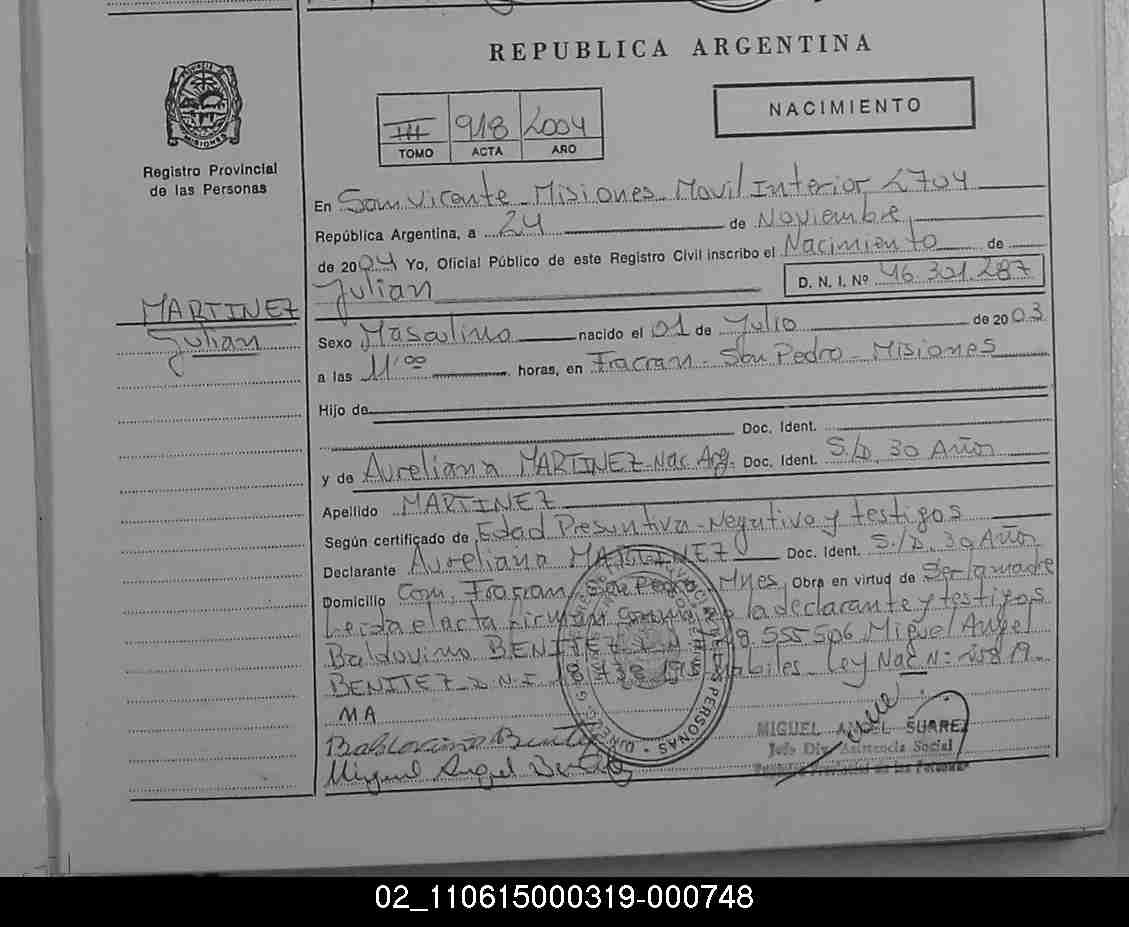 REPUBLICA ARGENTINA
NACIMIENTO
III 918 2004
TOMO ACTA AÑO
PROVINCIA DE MISIONES
Registro Provincial
de las Personas
En San Vicente Misiones Movil Interior 2704
República Argentina, a 24 de Noviembre
de 2004 Yo, Oficial Público de este Registro Civil inscribo el Nacimiento de
Julian D. N. I. Nº 46.301.287
MARTINEZ
Julian
Sexo Masculino nacido el 01 de Julio de 2003
a las 11:00 horas, en Fracran - San Pedro - Misiones
Hijo de
Doc. Ident.
y de Aureliana MARTINEZ Nac. Arg. Doc. Ident. S./D. 30 Años
Apellido MARTINEZ
Según certificado de Edad Presuntiva - Negativo y testigos
Declarante Aureliana MARTINEZ Doc. Ident. S./D. 30 Años
Domicilio Com. Fracran San Pedro Mnes. Obra en virtud de Ser la madre
Leida el acta firman la declarante y testigos
Baldovino BENITEZ 8.555.506 Miguel Angel
BENITEZ D.N.I. Ley Nac. N:
MA
Baldovino Benitez
Miguel Angel Benitez
MIGUEL ANGEL SUAREZ
Jefe Div. Asistencia Social
Registro Provincial de las Personas
02_110615000319-000748